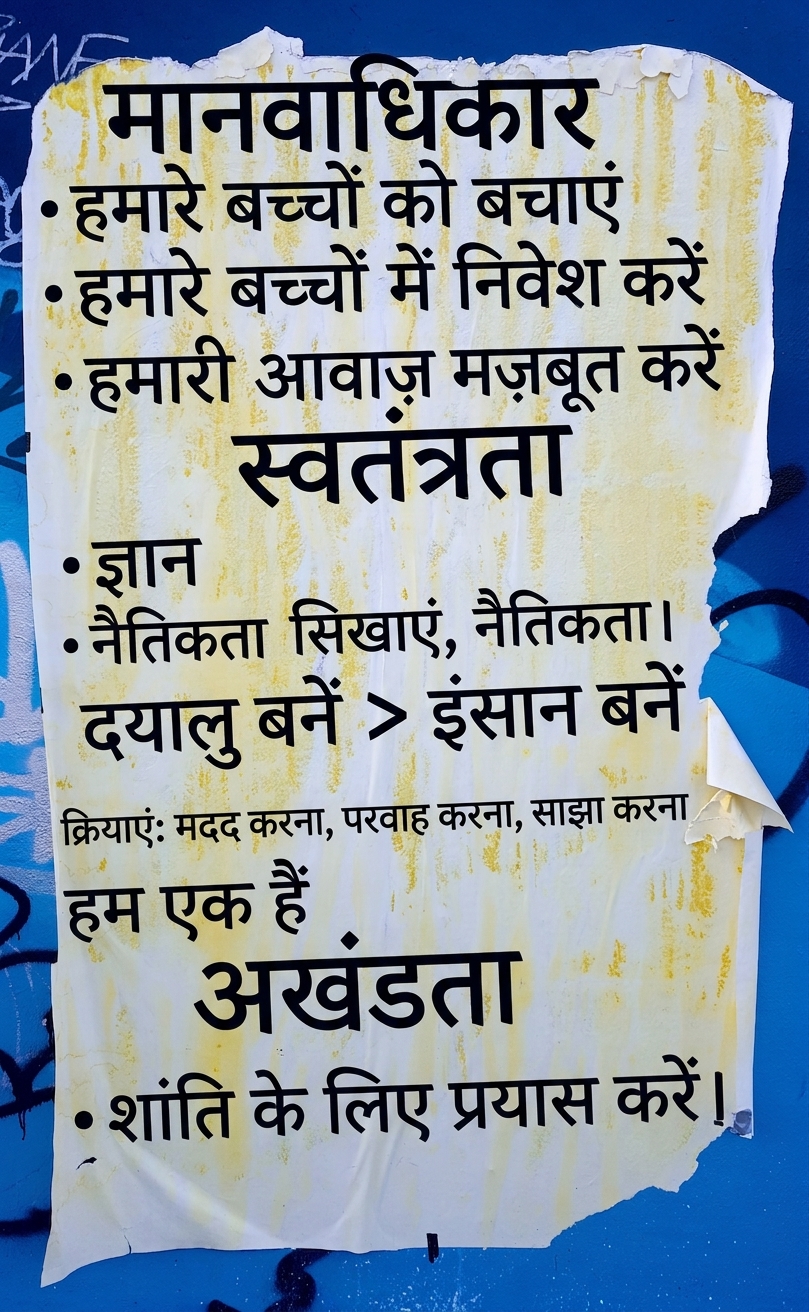 मानवाधिकार
• हमारे बच्चों को बचाएं
• हमारे बच्चों में निवेश करें
• हमारी आवाज़ मज़बूत करें
स्वतंत्रता
• ज्ञान
• नैतिकता सिखाएं, नैतिकता।
दयालु बनें > इंसान बनें
क्रियाएं: मदद करना, परवाह करना, साझा करना
हम एक हैं
अखंडता
• शांति के लिए प्रयास करें!